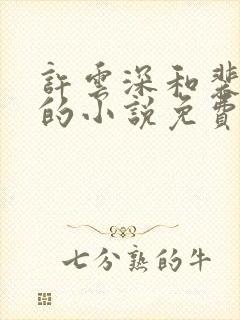 許雲深和裴
的小說免費
七分熟的牛